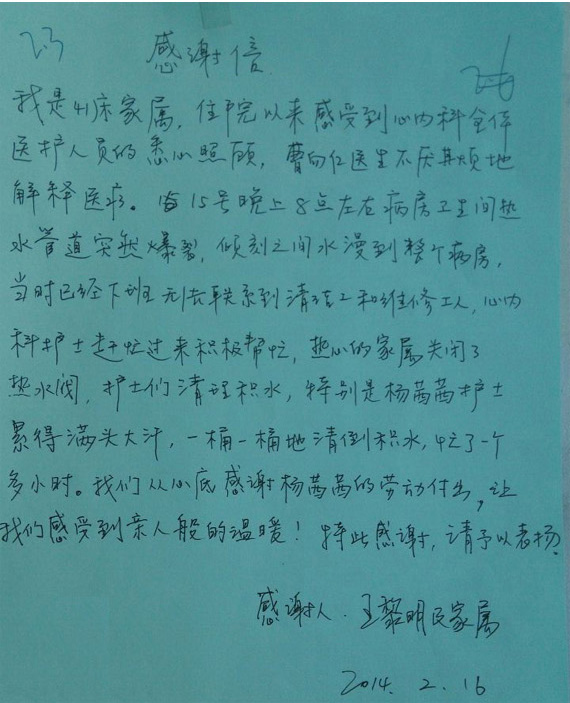 23
感谢信
我是41床家属，住院以来感受到心内科全体
医护人员的悉心照顾，曹向红医生不厌其烦地
解释医疗。15号晚上8点左右病房卫生间热
水管道突然爆裂，倾刻之间水漫到整个病房，
当时已经下班无法联系到清洁工和维修工人，心内
科护士赶忙过来积极帮忙，热心的家属关闭了
热水阀，护士们清理积水，特别是杨茜茜护士
累得满头大汗，一桶一桶地清倒积水，忙了一个
多小时。我们从心底感谢杨茜茜的劳动付出，让
我们感受到亲人般的温暖！特此感谢，请予以表扬。
感谢人．王黎明家属
2014. 2. 16